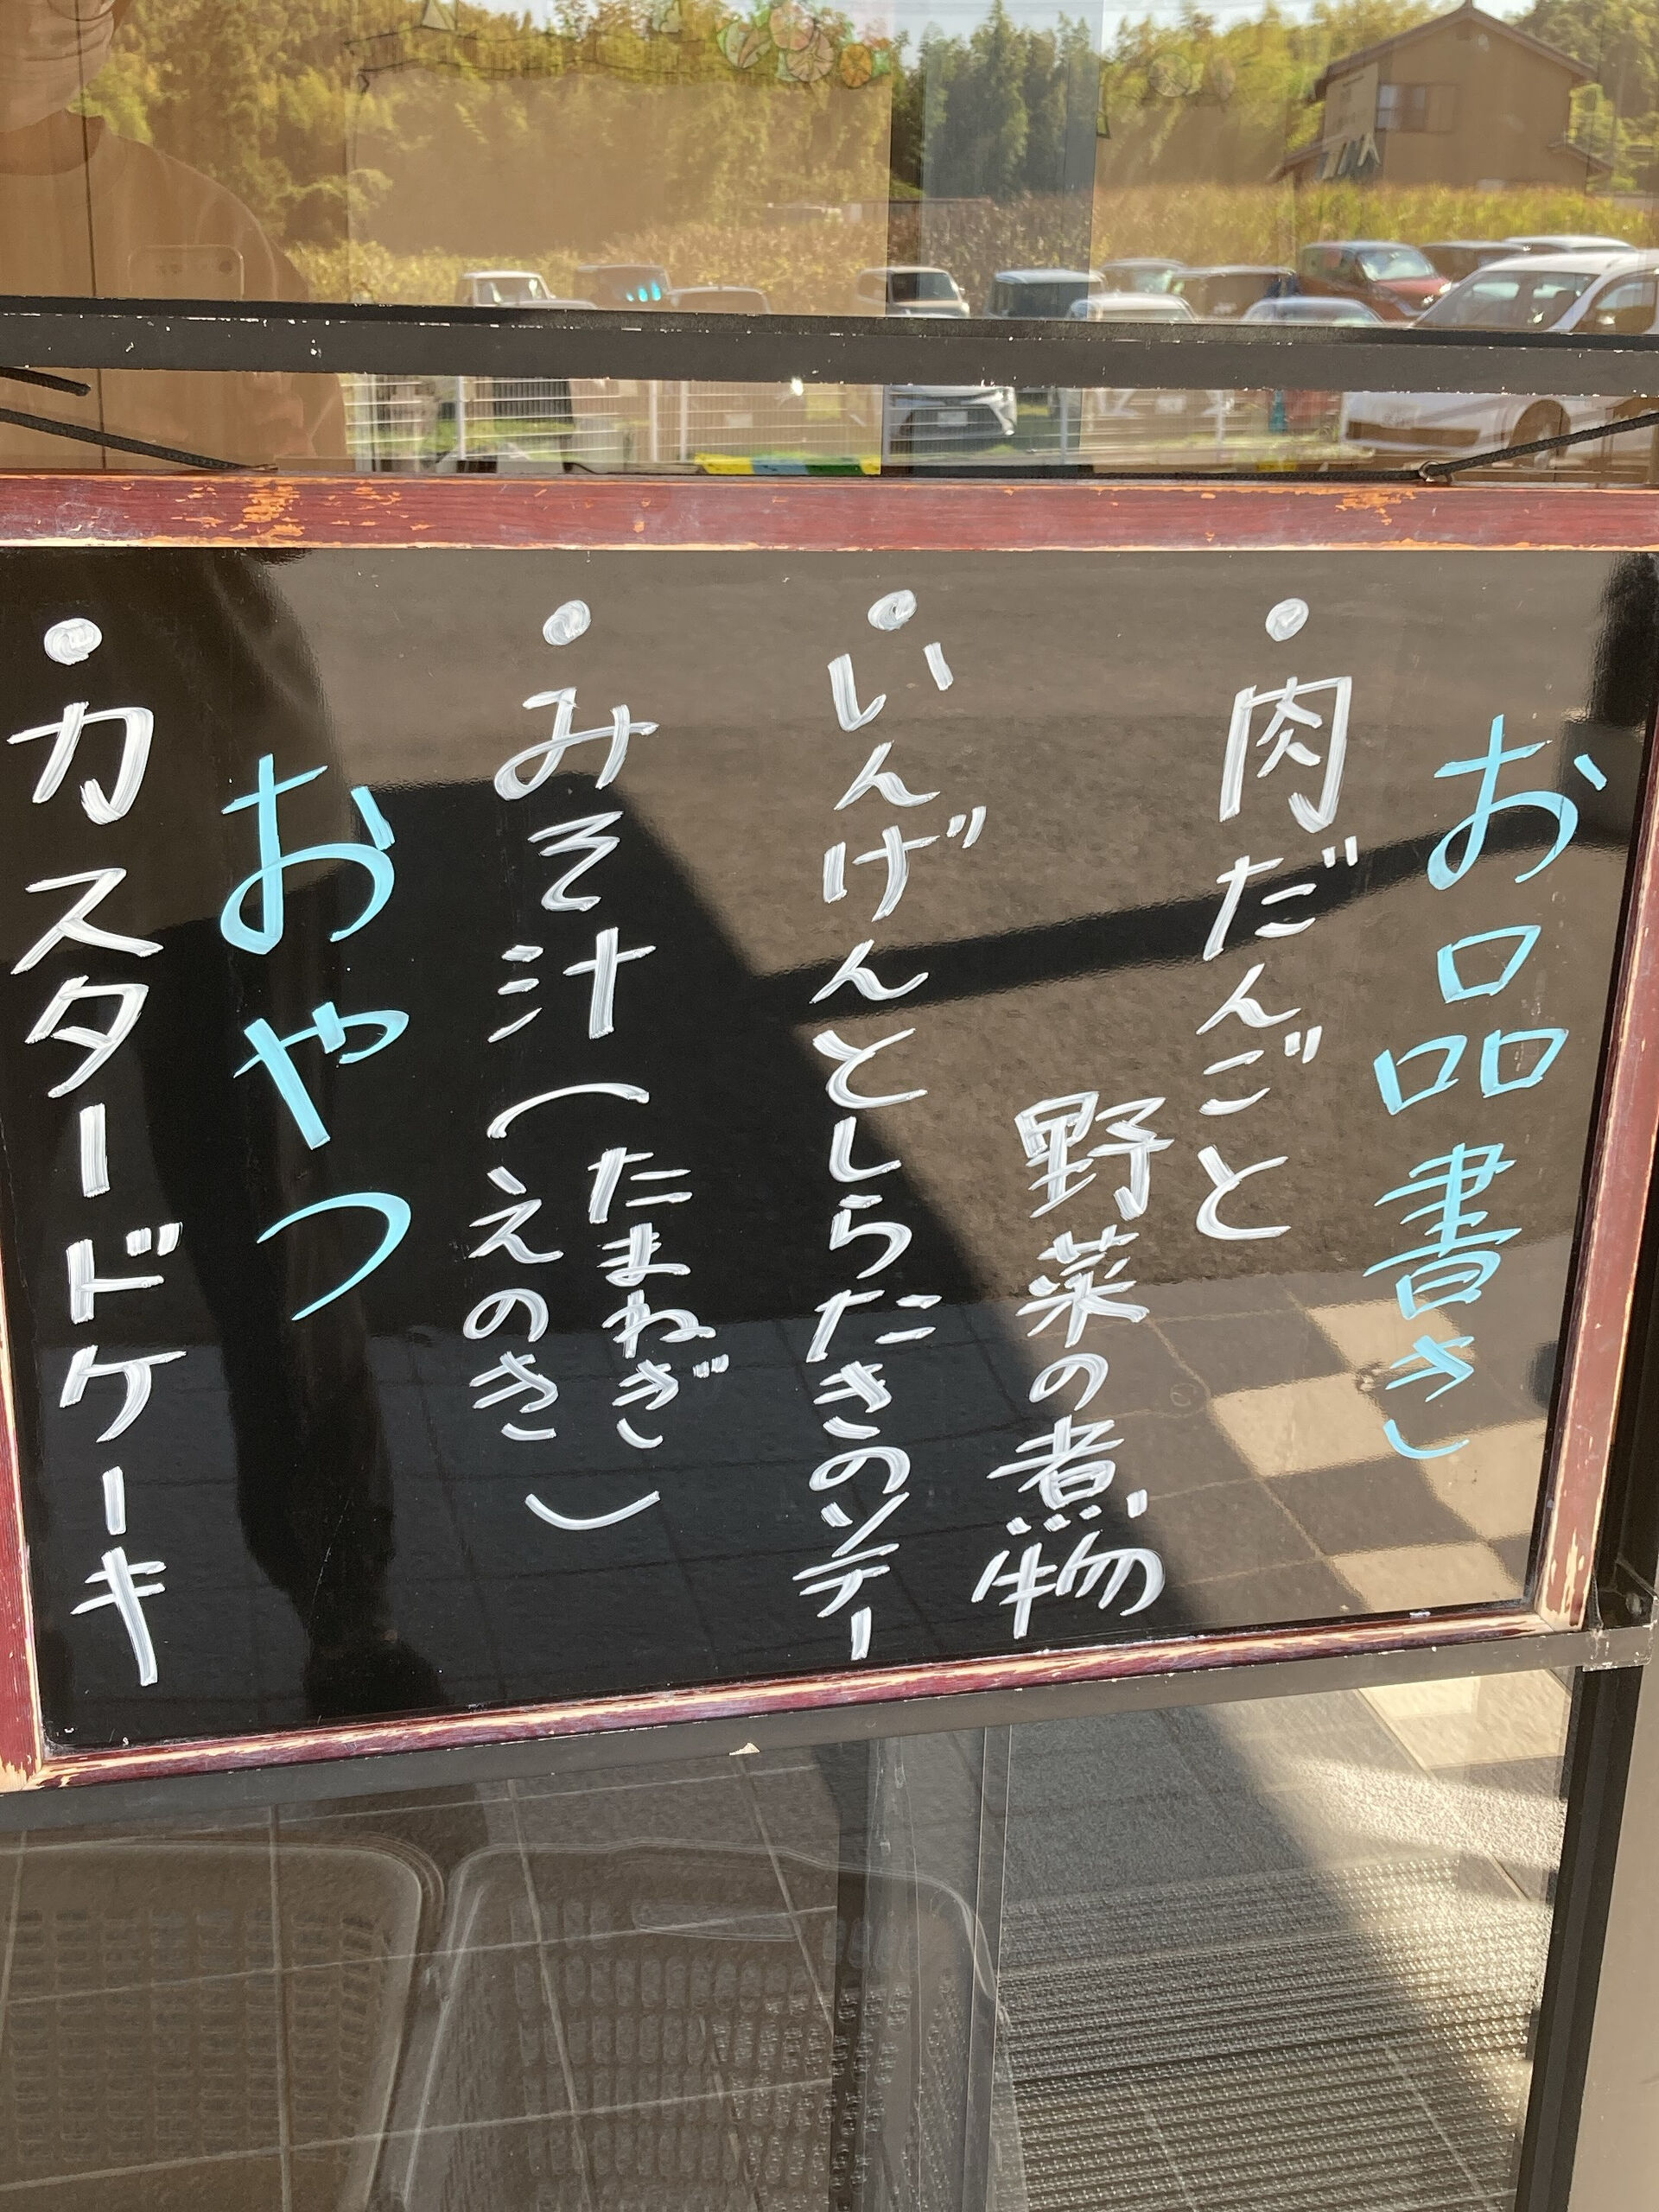 お品書き
・肉だんごと
野菜の煮物
・いんげんとしらたきのソテー
・みそ汁(たまねぎ
えのき)
おやつ
・カスタードケーキ